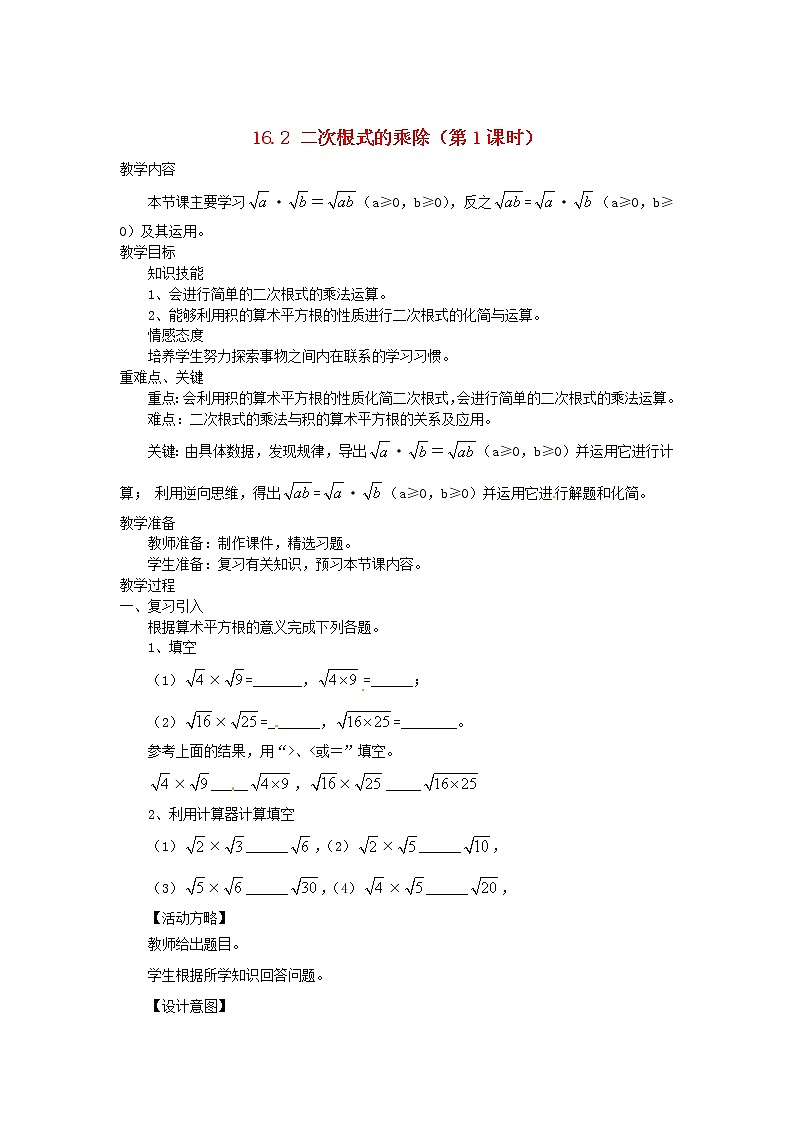 16.2 二次根式的乘除（第1课时）
教学内容
本节课主要学习√a·√b＝√ab（a≥0，b≥0），反之√ab=√a·√b（a≥0，b≥
0）及其运用。
教学目标
知识技能
1、会进行简单的二次根式的乘法运算。
2、能够利用积的算术平方根的性质进行二次根式的化简与运算。
情感态度
培养学生努力探索事物之间内在联系的学习习惯。
重难点、关键
重点：会利用积的算术平方根的性质化简二次根式，会进行简单的二次根式的乘法运算。
难点：二次根式的乘法与积的算术平方根的关系及应用。
关键：由具体数据，发现规律，导出√a·√b＝√ab（a≥0，b≥0）并运用它进行计
算； 利用逆向思维，得出√ab=√a·√b（a≥0，b≥0）并运用它进行解题和化简。
教学准备
教师准备：制作课件，精选习题。
学生准备：复习有关知识，预习本节课内容。
教学过程
一、复习引入
根据算术平方根的意义完成下列各题。
1、填空
（1）√4×√9=_______，√(4×9)=______；
（2）√16×√25=_______，√(16×25)=________。
参考上面的结果，用“>、<或＝”填空。
√4×√9_____√(4×9)，√16×√25_____√(16×25)
2、利用计算器计算填空
（1）√2×√3______√6，（2）√2×√5______√10，
（3）√5×√6______√30，（4）√4×√5______√20，
【活动方略】
教师给出题目。
学生根据所学知识回答问题。
【设计意图】